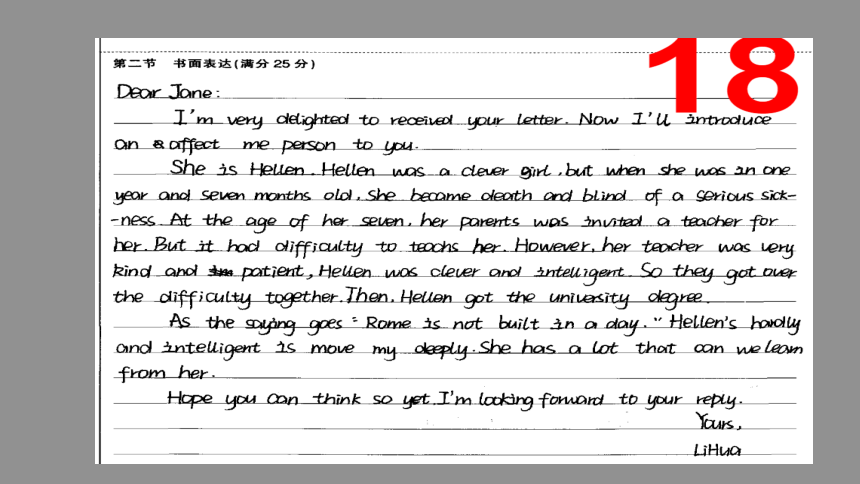 18
第二节 书面表达(满分 25 分)
Dear Jane:
I'm very delighted to received your letter. Now I'll introduce
an affect me person to you.
She is Hellen. Hellen was a clever girl, but when she was in one
year and seven months old, she became death and blind of a serious sick-
-ness. At the age of her seven, her parents was invited a teacher for
her. But it had difficulty to teachs her. However, her teacher was very
kind and patient, Hellen was clever and intelligent. So they got over
the difficulty together. Then, Hellen got the university degree.
As the saying goes "Rome is not built in a day." Hellen's hardly
and intelligent is move my deeply. She has a lot that can we learn
from her.
Hope you can think so yet. I'm looking forward to your reply.
Yours,
LiHua